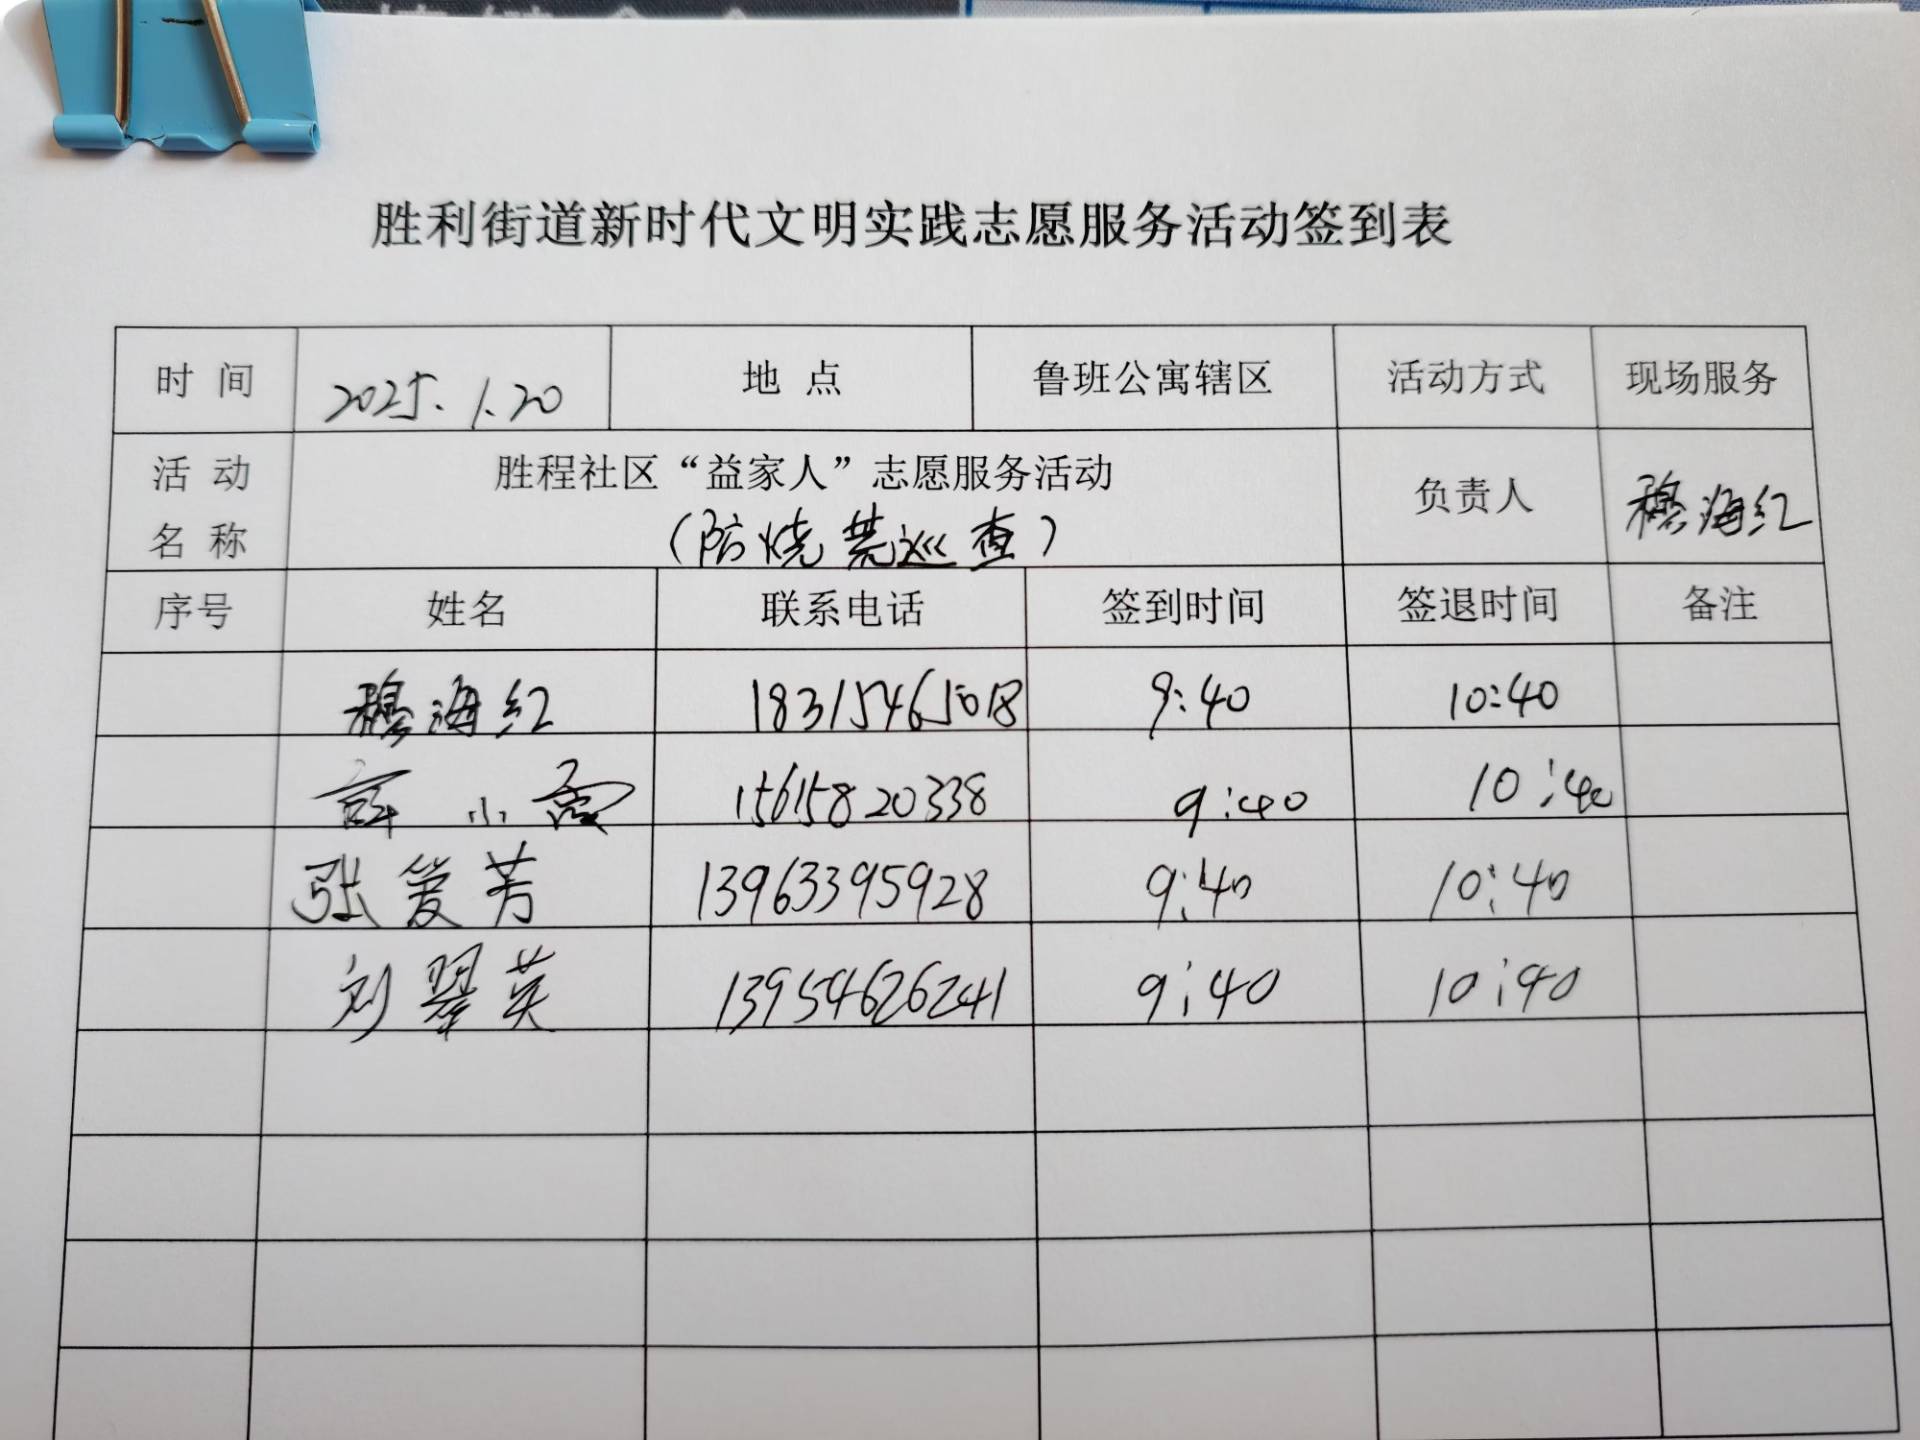 胜利街道新时代文明实践志愿服务活动签到表
时 间 2025.1.20 地 点 鲁班公寓辖区 活动方式 现场服务
活 动 名 称 胜程社区“益家人”志愿服务活动 负责人 穆海红
(防烧荒巡查)
序号 姓名 联系电话 签到时间 签退时间 备注
穆海红 18315465018 9:40 10:40
薛小霞 15615820338 9:40 10:40
张爱芳 13963395928 9:40 10:40
刘翠英 13954626241 9:40 10:40